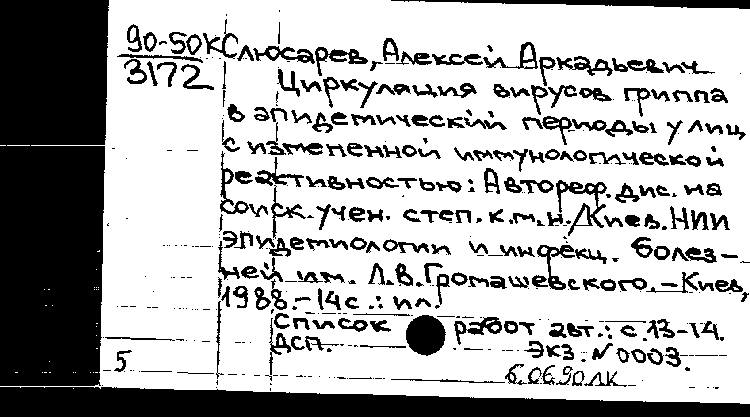 90-50К Слюсарев, Алексей Аркадьевич
3172 Циркуляция вирусов гриппа
в эпидемический периоды у лиц
с измененной иммунологической
реактивностью: Автореф. дис. на
соиск. учен. степ. к.м.н./Киев. НИИ
эпидемиологии и инфекц. болез-
ней им. Л.В.Громашевского. – Киев,
1988. – 14с.: ил.
Список работ авт.: с.13-14.
ДСП. экз. N 0003.
5 6.06.90 ЛК